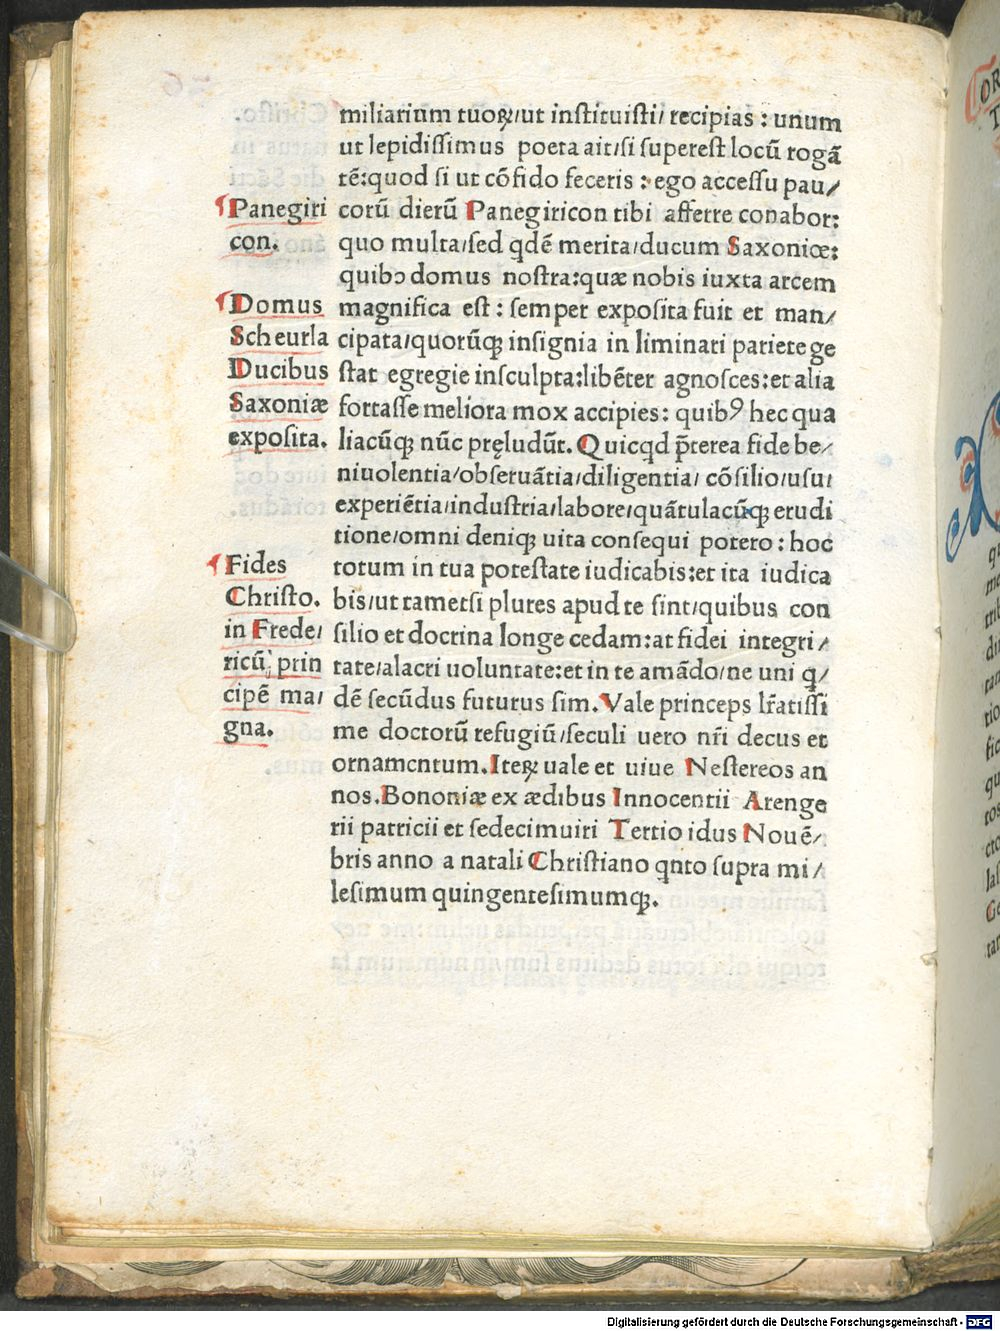 miliarium tuoꝝ/ut instituisti/ recipias : unum
ut lepidissimus poeta ait/si superest locū rogā
tē:quod si ut cōfido feceris : ego accessu pau/
corū dierū Panegiricon tibi afferre conabor:
quo multa/sed qdē merita/ducum Saxoniæ:
quibꝰ domus nostra:quæ nobis iuxta arcem
magnifica est : semper exposita fuit et man/
cipata/quorūqꝫ insignia in liminari pariete ge
stat egregie insculpta:libēter agnosces:et alia
fortasse meliora mox accipies: quibꝰ hec qua
liacūqꝫ nūc pręludūt. Quicqd p̄terea fide be/
niuolentia/obseruātia/diligentia/ cōsilio/usu/
experiētia/industria/labore/quātulacūqꝫ erudi
tione/omni deniqꝫ uita consequi potero : hoc
totum in tua potestate iudicabis:et ita iudica
bis/ut tametsi plures apud te sint/quibus con
silio et doctrina longe cedam:at fidei integri/
tate/alacri uoluntate:et in te amādo/ne uni q/
dē secūdus futurus sim. Vale princeps lr̄atissi
me doctorū refugiū/seculi uero nr̄i decus et
ornamentum. Iteꝝ uale et uiue Nestereos an
nos. Bononiæ ex ædibus Innocentii Arenge
rii patricii et sedecimuiri Tertio idus Nouē/
bris anno a natali Christiano qnto supra mi/
lesimum quingentesimumqꝫ.
Panegiri
con.
Domus
Scheurla
Ducibus
Saxoniæ
exposita.
Fides
Christo.
in Frede/
ricū prin
cipē ma/
gna.
Digitalisierung gefördert durch die Deutsche Forschungsgemeinschaft - DFG